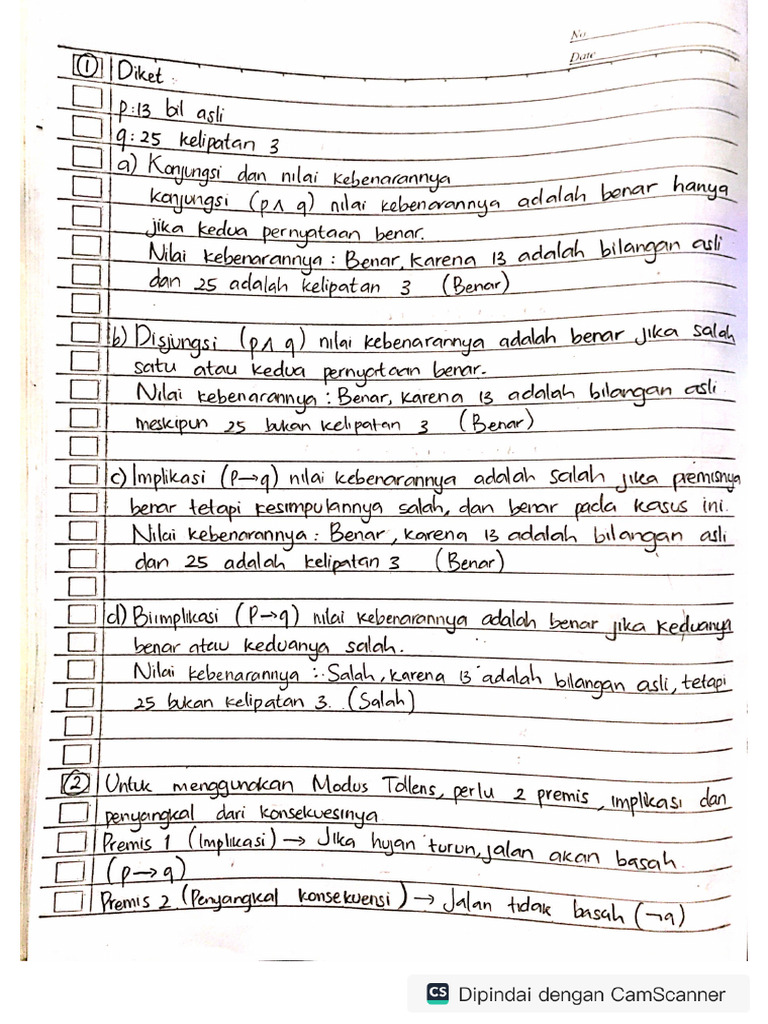 No
Date
① Diket :
p : 13 bil asli
q : 25 kelipatan 3
a) Konjungsi dan nilai kebenarannya
konjungsi (p ∧ q) nilai kebenarannya adalah benar hanya
jika kedua pernyataan benar.
Nilai kebenarannya : Benar, karena 13 adalah bilangan asli
dan 25 adalah kelipatan 3 (Benar)
b) Disjungsi (p ∧ q) nilai kebenarannya adalah benar jika salah
satu atau kedua pernyataan benar.
Nilai kebenarannya : Benar, karena 13 adalah bilangan asli
meskipun 25 bukan kelipatan 3 (Benar)
c) Implikasi (P → q) nilai kebenarannya adalah salah jika premisnya
benar tetapi kesimpulannya salah, dan benar pada kasus ini.
Nilai kebenarannya : Benar, karena 13 adalah bilangan asli
dan 25 adalah kelipatan 3 (Benar)
d) Biimplikasi (P → q) nilai kebenarannya adalah benar jika keduanya
benar atau keduanya salah.
Nilai kebenarannya : Salah, karena 13 adalah bilangan asli, tetapi
25 bukan kelipatan 3. (Salah)
② Untuk menggunakan Modus Tollens, perlu 2 premis, implikasi dan
penyangkal dari konsekuesinya
Premis 1 (Implikasi) → Jika hujan turun, jalan akan basah.
(p → q)
Premis 2 (Penyangkal konsekuensi) → Jalan tidak basah (¬q)
CS Dipindai dengan CamScanner